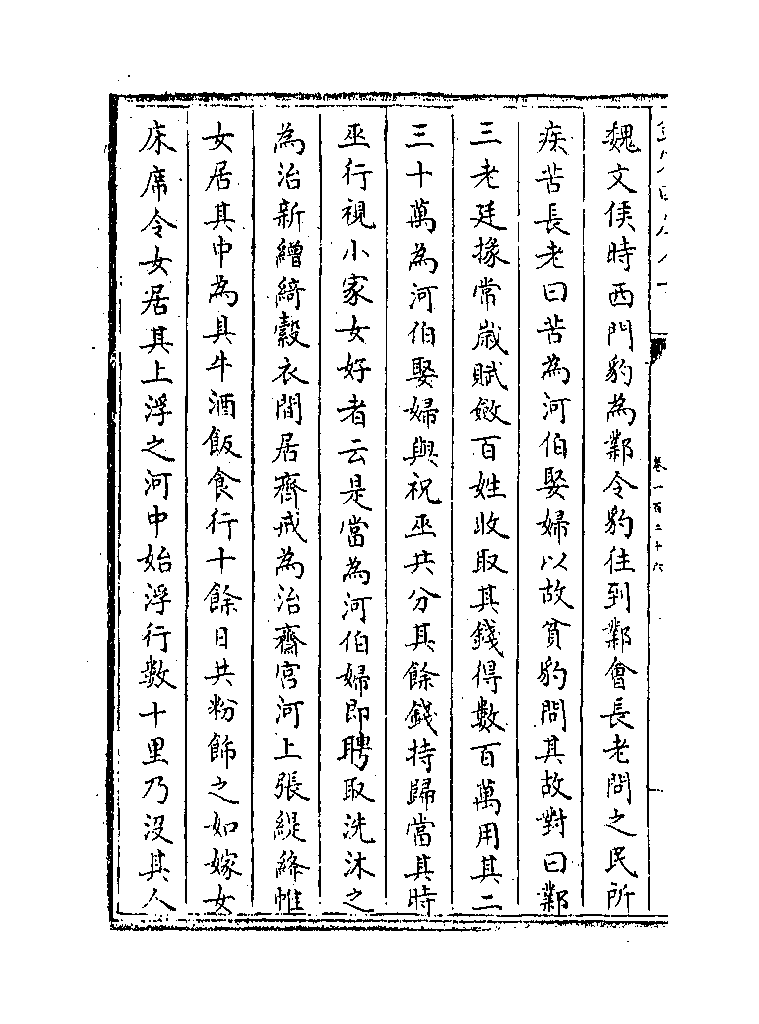 魏文侯時西門豹為鄴令豹往到鄴會長老問之民所
疾苦長老曰苦為河伯娶婦以故貧豹問其故對曰鄴
三老廷掾常嵗賦斂百姓收取其錢得數百萬用其二
三十萬為河伯娶婦與祝巫共分其餘錢持歸當其時
巫行視小家女好者云是當為河伯婦即聘取洗沐之
為治新繒綺縠衣間居齋戒為治齋宫河上張緹絳帷
女居其中為具牛酒飯食行十餘日共粉飾之如嫁女
床席令女居其上浮之河中始浮行數十里乃没其人
卷一百二十六